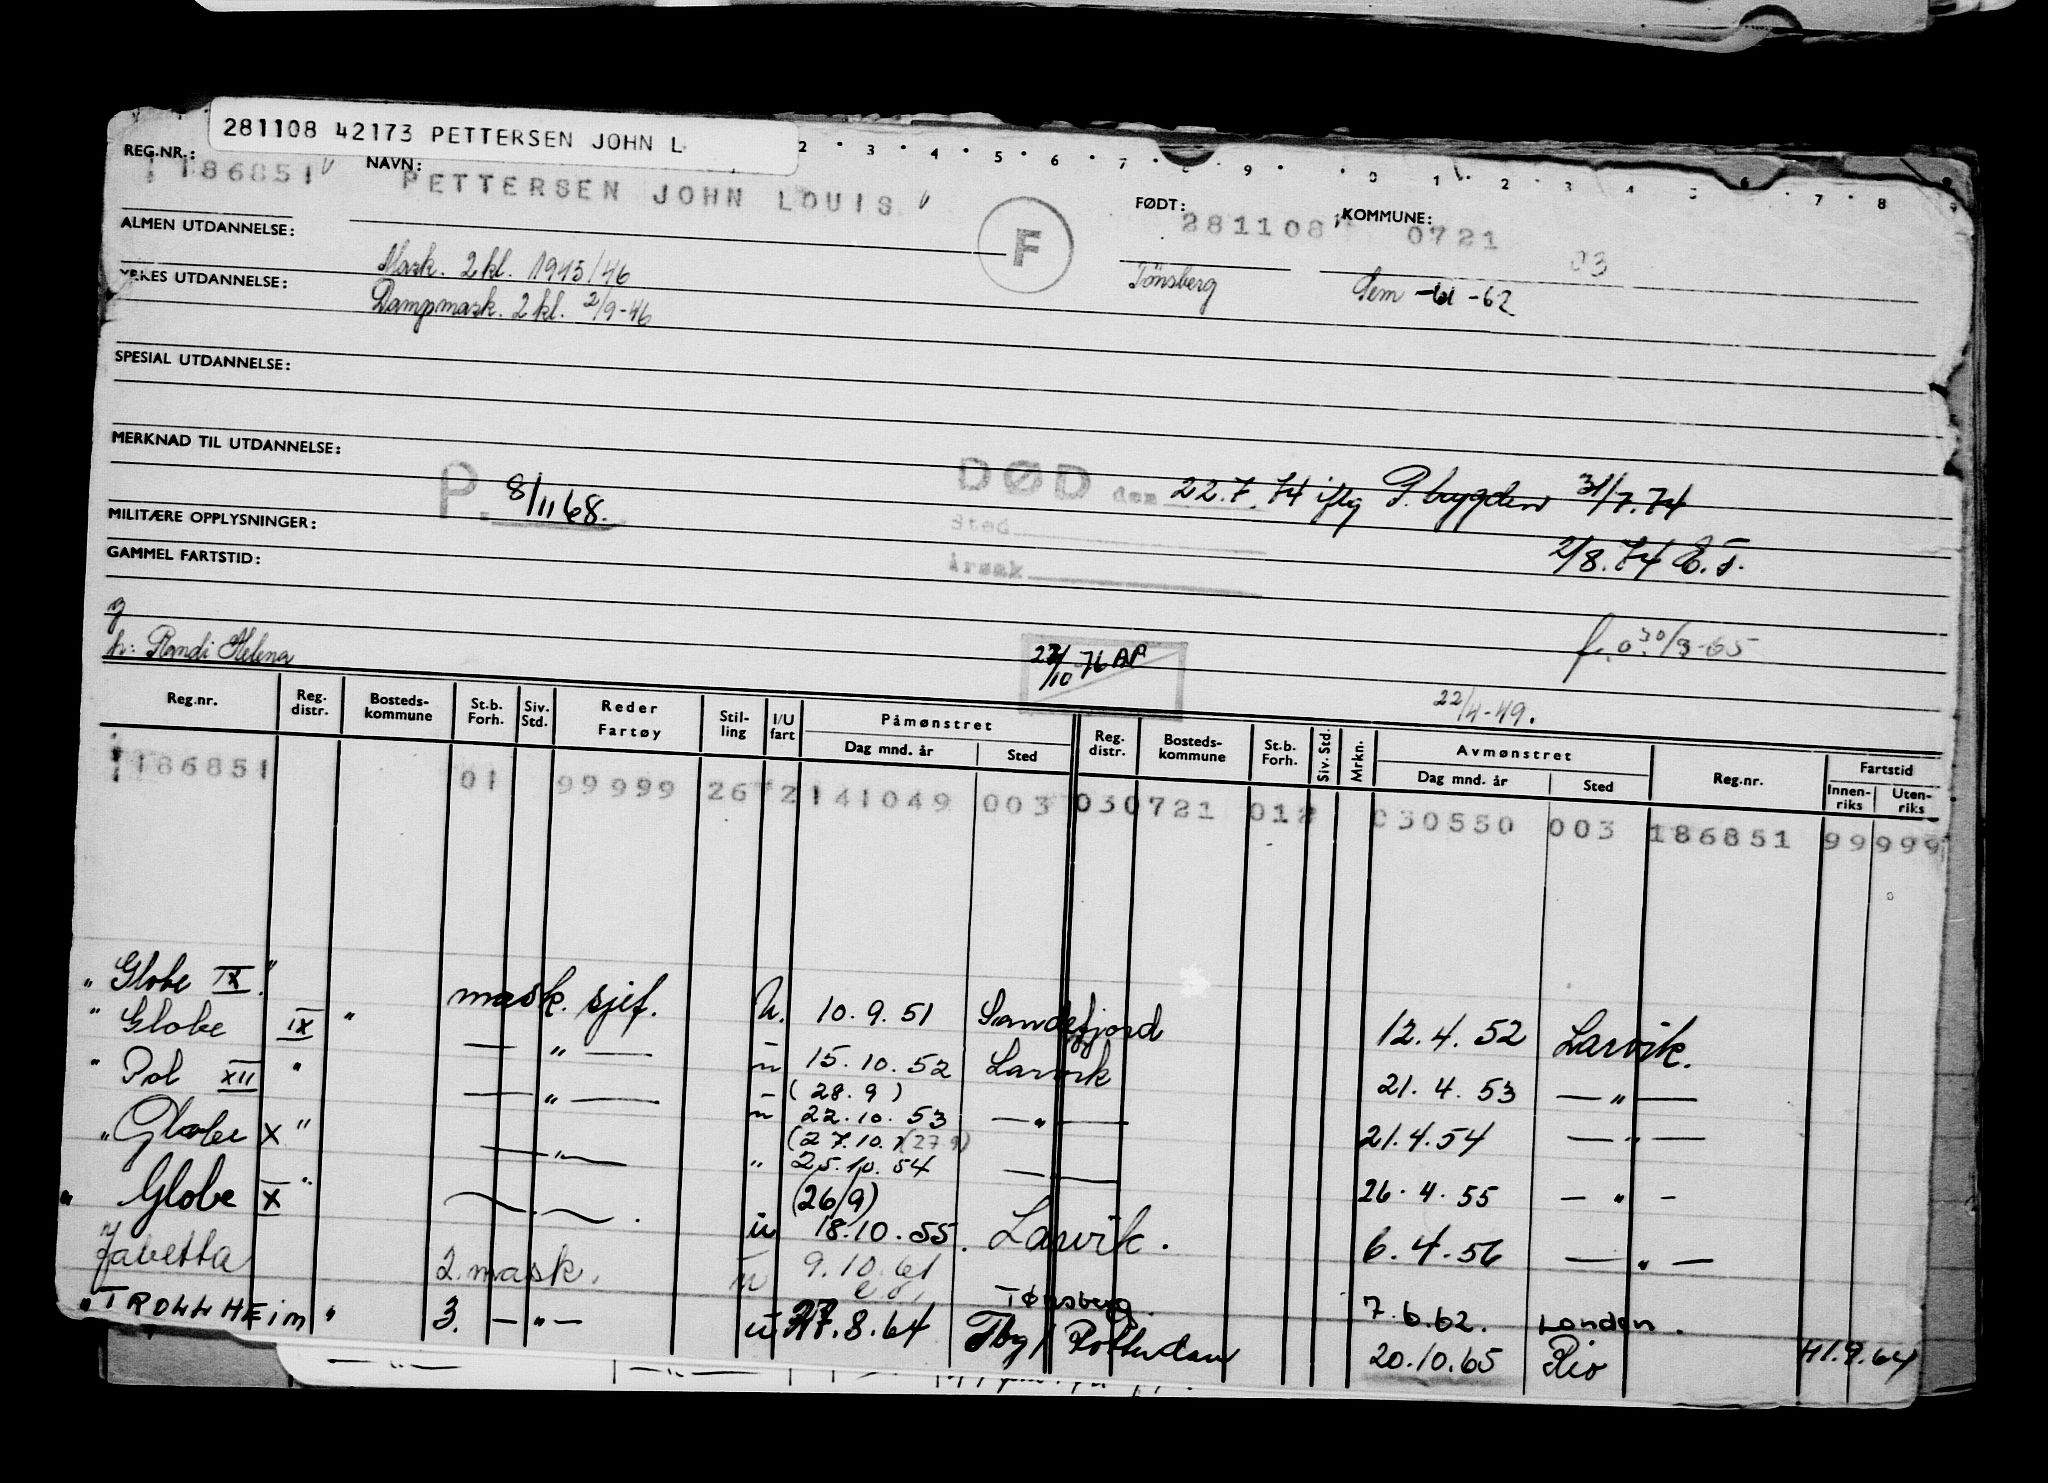 281108 42173 PETTERSEN JOHN L
2 3 4 5 6 7 8 9 0 1 2 3 4 5 6 7 8 9
REG.NR.: 186851 NAVN: PETTERSEN JOHN LOUIS F FØDT: 281108 KOMMUNE: 0721 03
ALMEN UTDANNELSE: Tønsberg Sem -61 -62
YRKES UTDANNELSE: Mask. 2 kl. 1945/46
Dampmask. 2 kl. 2/9-46
SPESIAL UTDANNELSE:
MERKNAD TIL UTDANNELSE:
P. 8/11 68. DØD den 22.7.74 iflg P. bygden 31/7.74
MILITÆRE OPPLYSNINGER: Sted 2/8.74 E.T.
GAMMEL FARTSTID: Årsak
g
h: Randi Helena 10 76 AP 30/3-65
22/4-49.
Reg.nr. Reg. distr. Bosteds-kommune St.b. Forh. Siv. Std. Reder Fartøy Stil-ling I/U fart Påmønstret Dag mnd. år Sted Reg. distr. Bosteds-kommune St.b. Forh. Siv. Std. Mrkn. Avmønstret Dag mnd. år Sted Reg.nr. Fartstid Innen-riks Uten-riks
186851 01 99999 26 2 141049 003 030721 012 030550 003 186851 99999
" Globe IX " mask. sjef. u. 10.9.51 Sandefjord 12.4.52 Larvik.
" Globe IX " — " — u 15.10.52 Larvik 21.4.53 — " —
(28.9)
" Pol XII " — " — u 22.10.53 — " — 21.4.54 — " —
(27.10.) (27.9)
" Globe X " — " — " 25.10.54 — 26.4.55 — " —
(26/9)
" Globe X " u 18.10.55. Larvik. 6.4.56 — " —
Javetta 2. mask. u 9.10.61 Tønsberg. 7.6.62. London.
" TROLLHEim " 3. — " — u 27.8.64 Tbg/ Rotterdam 20.10.65 Rio